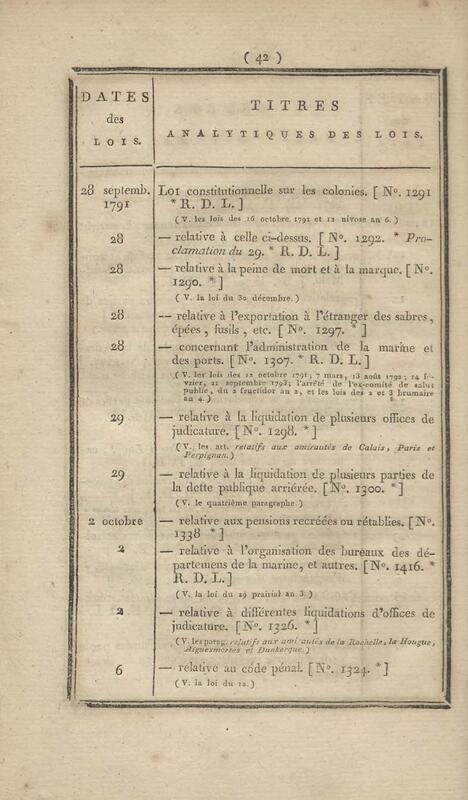 ( 42 )
DATES
des
LOIS.
TITRES
ANALYTIQUES DES LOIS.
28 septemb. Loi constitutionnelle sur les colonies. [ N°. 1291
1791 * R. D. L. ]
( V. les lois des 16 octobre 1791 et 12 nivose an 6. )
28 — relative à celle ci-dessus. [ N°. 1292. * Pro-
clamation du 29. * R. D. L. ]
28 — relative à la peine de mort et à la marque. [ N°.
1290. * ]
( V. la loi du 30 décembre. )
28 — relative à l'exportation à l'étranger des sabres,
épées, fusils, etc. [ N°. 1297. * ]
28 — concernant l'administration de la marine et
des ports. [ N°. 1307. * R. D. L. ]
( V. les lois des 12 octobre 1791; 7 mars, 13 août 1792; 14 fé-
vrier, 21 septembre 1793; l'arrêté de l'ex-comité de salut
public, du 2 fructidor an 2, et les lois des 2 et 3 brumaire
an 4. )
29 — relative à la liquidation de plusieurs offices de
judicature. [ N°. 1298. * ]
( V. les art. relatifs aux amirautés de Calais, Paris et
Perpignan. )
29 — relative à la liquidation de plusieurs parties de
la dette publique arriérée. [ N°. 1300. * ]
( V. le quatrième paragraphe. )
2 octobre — relative aux pensions recréées ou rétablies. [ N°.
1338 * ]
2 — relative à l'organisation des bureaux des dé-
partemens de la marine, et autres. [ N°. 1416. *
R. D. L. ]
( V. la loi du 29 prairial an 3. )
2 — relative à différentes liquidations d'offices de
judicature. [ N°. 1326. * ]
( V. les parag. relatifs aux amirautés de la Rochelle, la Hougue,
Aiguesmortes et Dunkerque. )
6 — relative au code pénal. [ N°. 1324. * ]
( V. la loi du 12. )